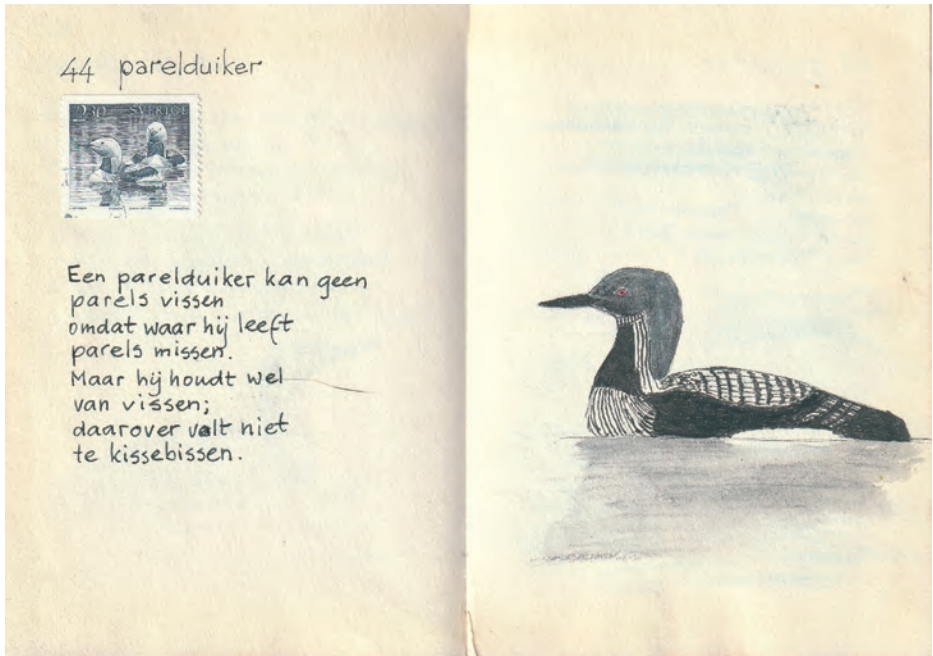 44 parelduiker
2.30 SVERIGE
Een parelduiker kan geen
parels vissen
omdat waar hij leeft
parels missen.
Maar hij houdt wel
van vissen;
daarover valt niet
te kissebissen.